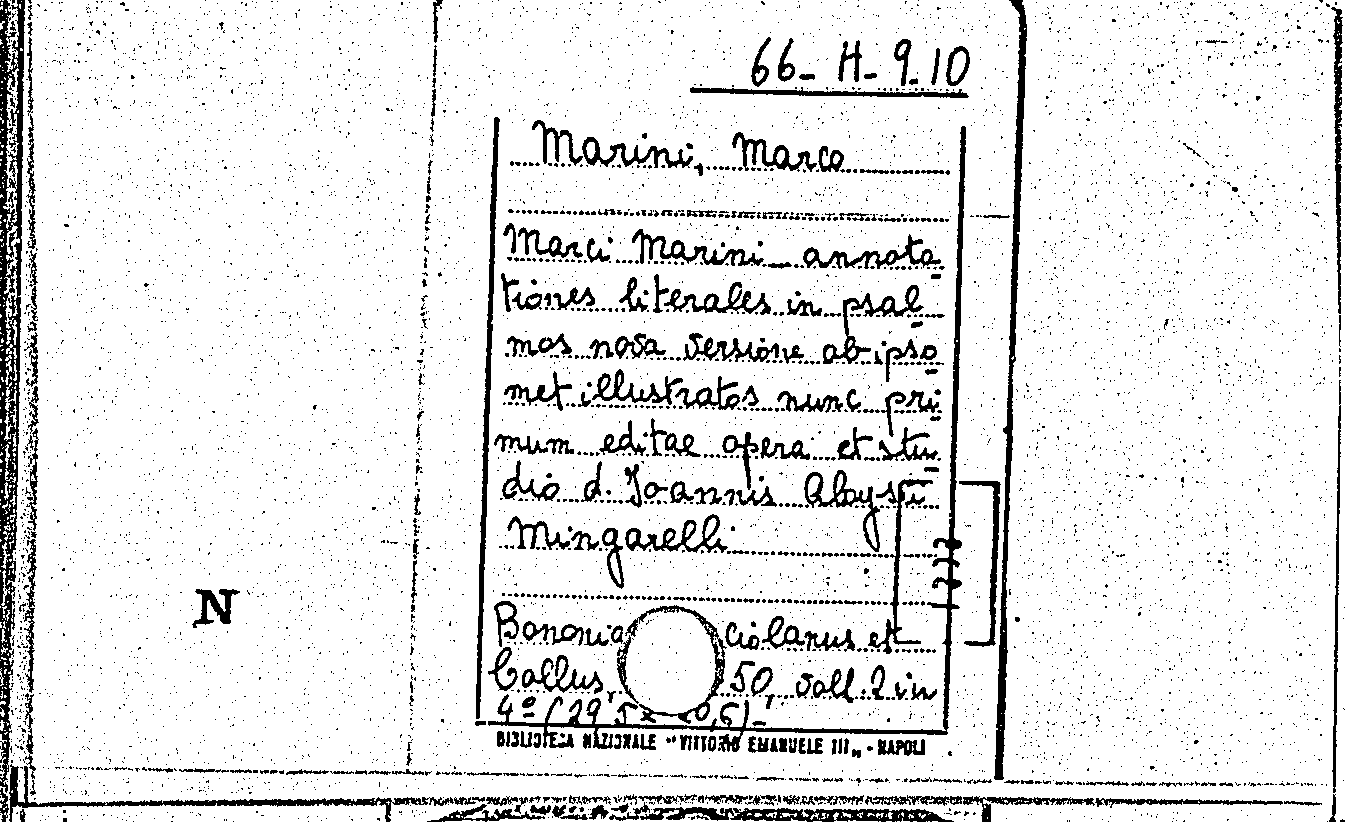 66-H-9.10
Marini, Marco
Marci Marini annota-
tiones literales in psal-
mos nova versione ab ipso-
met illustratos nunc pri-
mum editae opera et stu-
dio d. Joannis Aloysii
Mingarelli
N
Bononia ciolanus et
Collus, 50, voll. 2 in
4º (29,5 x 20,5)-
BIBLIOTECA NAZIONALE "VITTORIO EMANUELE III" - NAPOLI